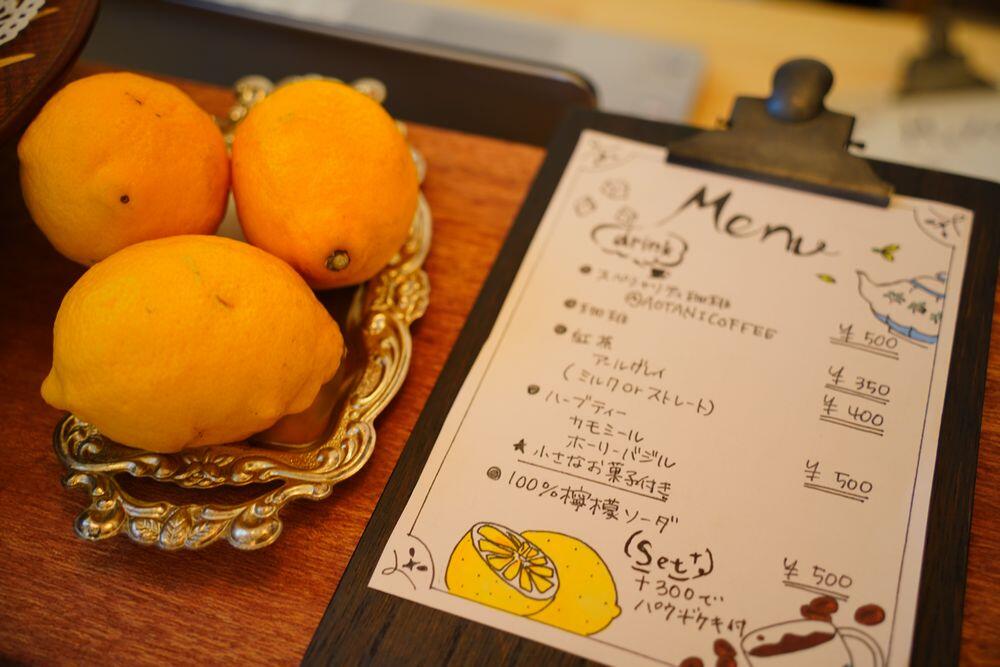 Menu
drink
● スペシャリティ珈琲
@AOTANICOFFEE
¥500
● 珈琲
¥350
● 紅茶
¥400
アールグレイ
(ミルク or ストレート)
● ハーブティー
カモミール
ホーリーバジル
¥500
★ 小さなお菓子付き
● 100%檸檬ソーダ
¥500
(Set)
+300で
パウンドケーキ付